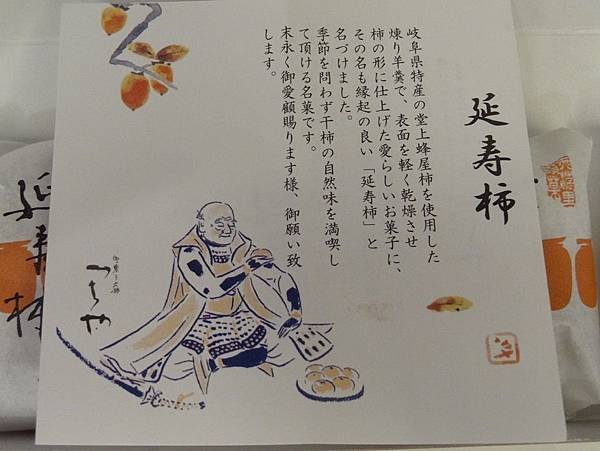 延寿柿
岐阜県特産の堂上蜂屋柿を使用した
煉り羊羹で、表面を軽く乾燥させ
柿の形に仕上げた愛らしいお菓子に、
その名も縁起の良い「延寿柿」と
名づけました。
季節を問わず干柿の自然味を満喫し
て頂ける名菓です。
末永く御愛顧賜ります様、御願い致
します。
つちや
延寿柿